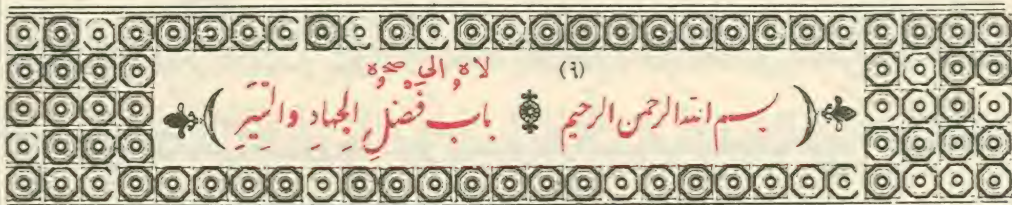 (٦) لا ه الى صح ه
بسم الله الرحمن الرحيم باب فَضْلِ الجِهادِ والسِّيَرِ